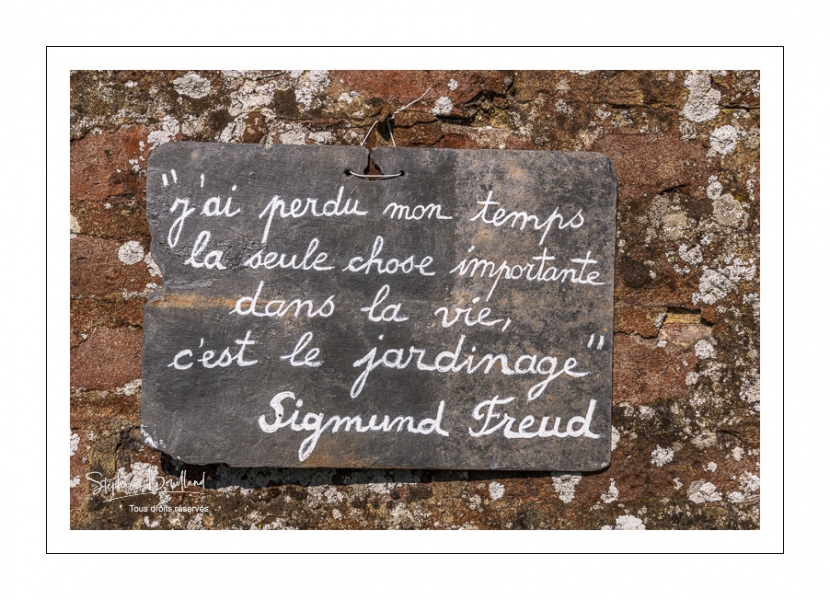 "j'ai perdu mon temps
la seule chose importante
dans la vie,
c'est le jardinage"
Sigmund Freud
Tous droits réservés